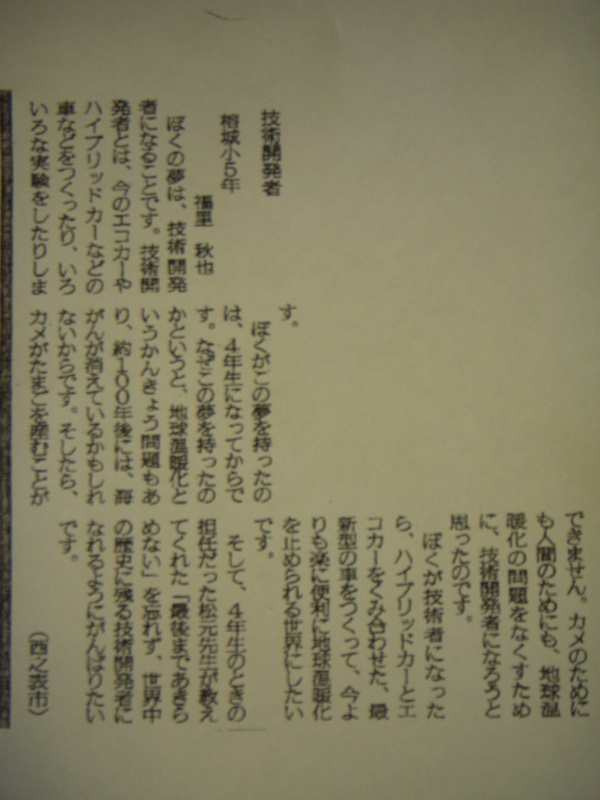 技術開発者
榕城小5年
福里 秋也
ぼくの夢は、技術開発
者になることです。技術開
発者とは、今のエコカーや
ハイブリッドカーなどの
車などをつくったり、いろ
いろな実験をしたりしま
す。
ぼくがこの夢を持ったの
は、4年生になってからで
す。なぜこの夢を持ったの
かというと、地球温暖化と
いうかんきょう問題もあ
り、約100年後には、海
がんが消えているかもしれ
ないからです。そしたら、
カメがたまごを産むことが
できません。カメのために
も人間のためにも、地球温
暖化の問題をなくすため
に、技術開発者になろうと
思ったのです。
ぼくが技術者になった
ら、ハイブリッドカーとエ
コカーをくみ合わせた、最
新型の車をつくって、今よ
りも楽に便利に地球温暖化
を止められる世界にしたい
です。
そして、4年生のときの
担任だった松元先生が教え
てくれた「最後まであきら
めない」を忘れず、世界中
の歴史に残る技術開発者に
なれるようにがんばりたい
です。
(西之表市)